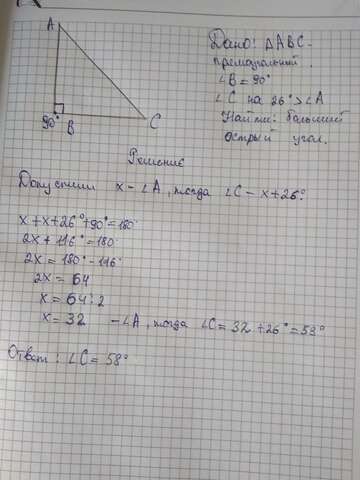 A
90° B
C
Дано: ΔABC -
прямоугольный.
∠B = 90°
∠C на 26° > ∠A
Найти: больший
острый угол.
Решение
Допустим x - ∠A, тогда ∠C - x+26°.
x + x + 26° + 90° = 180°
2x + 116° = 180°
2x = 180° - 116°
2x = 64
x = 64 : 2
x = 32 - ∠A, тогда ∠C = 32 + 26° = 58°
Ответ: ∠C = 58°